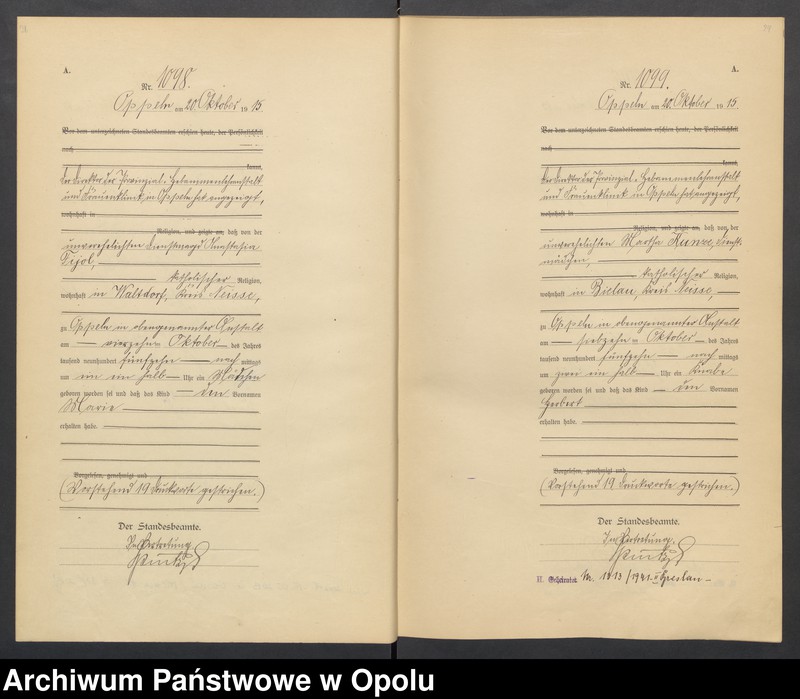 A.
Nr. 1098.
Oppeln am 20. Oktober 1915
Vor dem unterzeichneten Standesbeamten erschien heute, der Persönlichkeit
nach
kannt,
Der Direktor der Provinzial-Hebammenlehranstalt
und Frauenklinik in Oppeln hat angezeigt,
wohnhaft in
Religion, und zeigte an, daß von der
unverehelichten Dienstmagd Anastasia
Pijol,
katholischer Religion,
wohnhaft in Waltdorf, Kreis Neisse,
zu Oppeln in obengenannter Anstalt
am — vierzehn — Oktober — des Jahres
tausend neunhundert fünfzehn — nach mittags
um ein halb — Uhr ein Mädchen
geboren worden sei und daß das Kind — den Vornamen
Marie
erhalten habe.
Vorgelesen, genehmigt und
(Vorstehend 19 Druckworte gestrichen.)
Der Standesbeamte.
In Vertretung
A.
Nr. 1099.
Oppeln am 20. Oktober 1915.
Vor dem unterzeichneten Standesbeamten erschien heute, der Persönlichkeit
nach
kannt,
Der Direktor der Provinzial-Hebammenlehranstalt
und Frauenklinik in Oppeln hat angezeigt,
wohnhaft in
Religion, und zeigte an, daß von der
unverehelichten Martha Kunze, Dienst-
mädchen,
katholischer Religion,
wohnhaft in Bielau, Kreis Neisse,
zu Oppeln in obengenannter Anstalt
am — siebzehn — Oktober — des Jahres
tausend neunhundert fünfzehn — nach mittags
um zwei ein halb — Uhr ein Knabe
geboren worden sei und daß das Kind — den Vornamen
Herbert
erhalten habe.
Vorgelesen, genehmigt und
(Vorstehend 19 Druckworte gestrichen.)
Der Standesbeamte.
In Vertretung.
1213/1941 II Breslau —
Archiwum Państwowe w Opolu